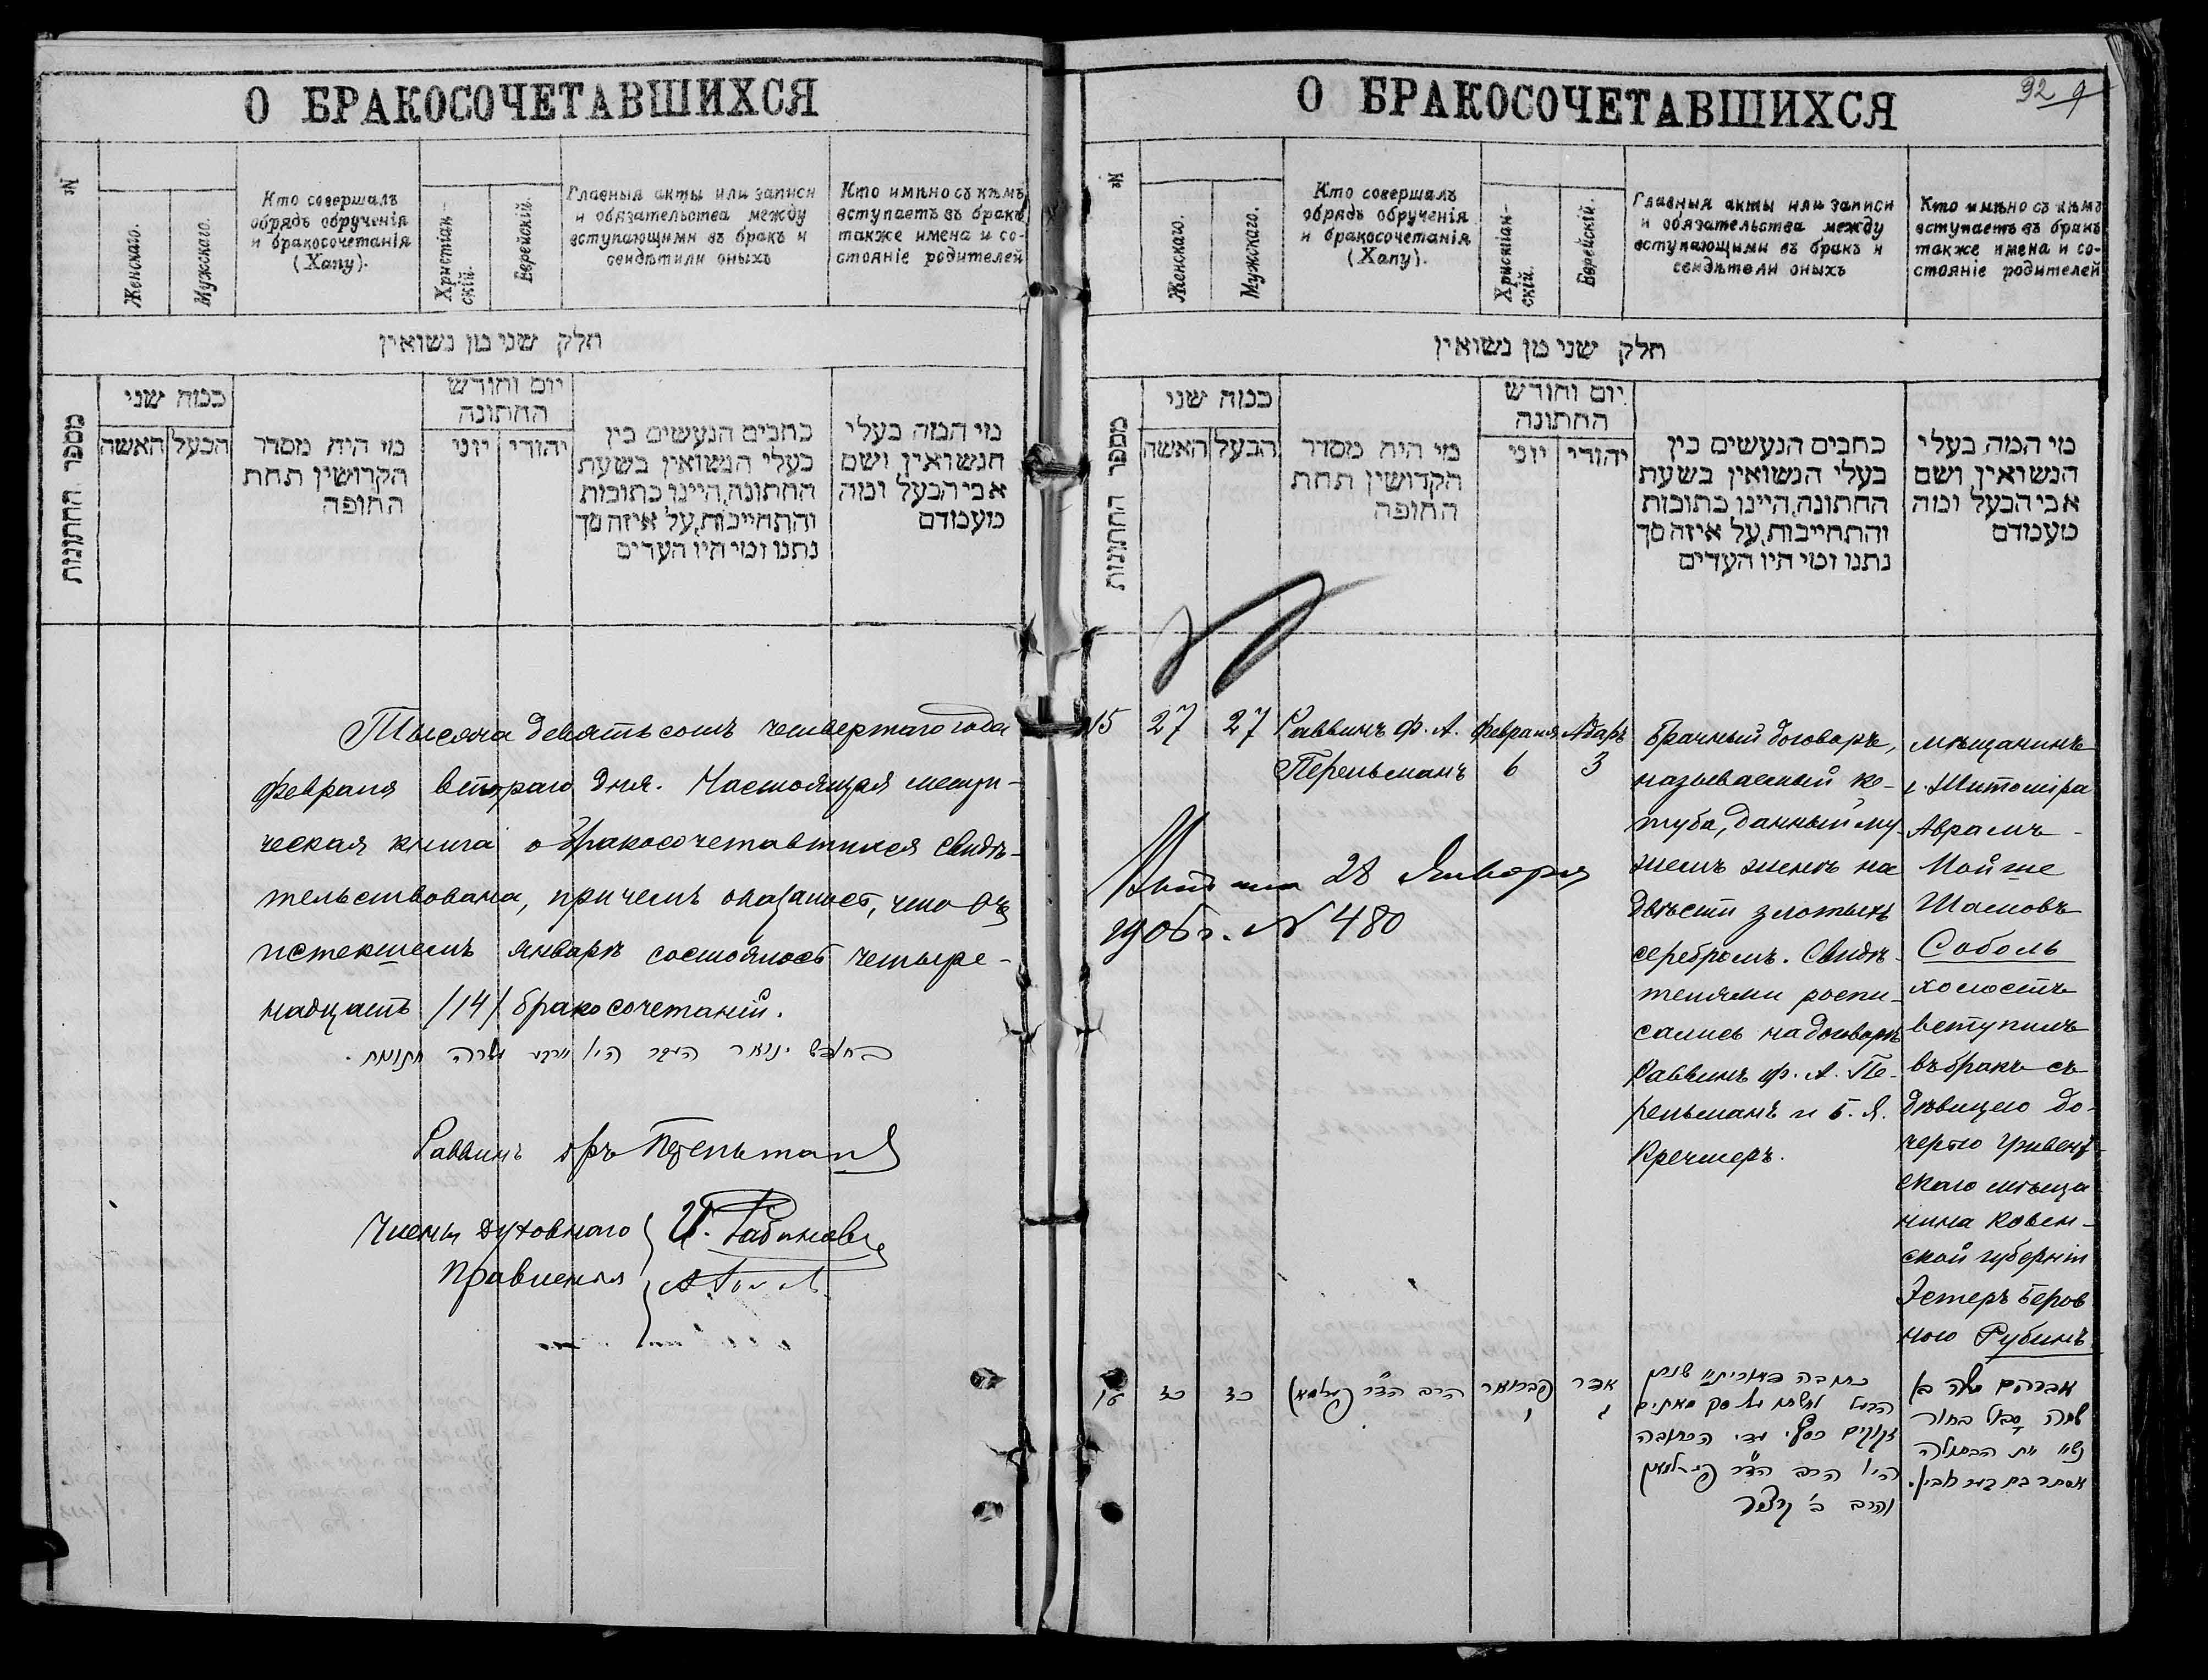 О БРАКОСОЧЕТАВШИХСЯ
№
Женскаго.
Мужскаго.
Кто совершалъ
обрядъ обрученія
и бракосочетанія
(Хапу).
Христіан-
скій.
Еврейскій.
Главныя акты или записи
и обязательства между
вступающими въ бракъ и
свидѣтили оныхъ
Кто имѣно съ кѣмъ
вступаетъ въ бракъ
также имена и со-
стояніе родителей
חלק שני מן נשואין
מספר החתונות
כמה שני
האשה
הבעל
מי היה מסדר
הקדושין תחת
החופה
יום וחודש
החתונה
יוני
יהודי
כתבים הנעשים בין
בעלי הנשואין בשעת
החתונה, היינו כתובות
והתחייבות, על איזה סך
נתנו ומי היו העדים
מי המה בעלי
הנשואין, ושם
אבי הבעל ומה
מעמדם
Тысяча девятьсотъ четвертаго года
февраля втораго дня. Настоящая метри-
ческая книга о бракосочетавшихся свидѣ-
тельствована, причемъ оказалось, что въ
истекшемъ январѣ состоялось четыре-
надцать /14/ бракосочетаній.
בחודש ינואר העבר היו ארבע עשרה חתונות.
Раввинъ Ф. Перельман
Члены Духовнаго
Правленія
И. Рабинович
О БРАКОСОЧЕТАВШИХСЯ
92 9
№
Женскаго.
Мужскаго.
Кто совершалъ
обрядъ обрученія
и бракосочетанія
(Хапу).
Христіан-
скій.
Еврейскій.
Главныя акты или записи
и обязательства между
вступающими въ бракъ и
свидѣтели оныхъ
Кто имѣно съ кѣмъ
вступаетъ въ бракъ
также имена и со-
стояніе родителей
חלק שני מן נשואין
מספר החתונות
כמה שני
האשה
הבעל
מי היה מסדר
הקדושין תחת
החופה
יום וחודש
החתונה
יוני
יהודי
כתבים הנעשים בין
בעלי הנשואין בשעת
החתונה, היינו כתובות
והתחייבות, על איזה סך
נתנו ומי היו העדים
מי המה בעלי
הנשואין, ושם
אבי הבעל ומה
מעמדם
15
27
27
Раввинъ Ф. А.
Перельманъ
Февраля
6
Адаръ
3
Брачный договоръ,
называемый ке-
туба, данный му-
жемъ женѣ на
двѣсти злотыхъ
серебромъ. Свидѣ-
телями роспи-
сались на договорѣ
Раввинъ Ф. А. Пе-
рельманъ и Б. Я.
Кречмеръ.
мѣщанинъ
г. Житоміра
Аврамъ-
Мойше
Шамовъ
Соболь
холостъ
вступилъ
въ бракъ съ
дѣвицею до-
черью Гривен-
скаго мѣща-
нина Ковен-
ской губерніи
Эстеръ Беров-
ною Рубинъ
28 Января
1906 г. № 480
כז
כז
פברואר
אדר
ג
אברהם משה בן